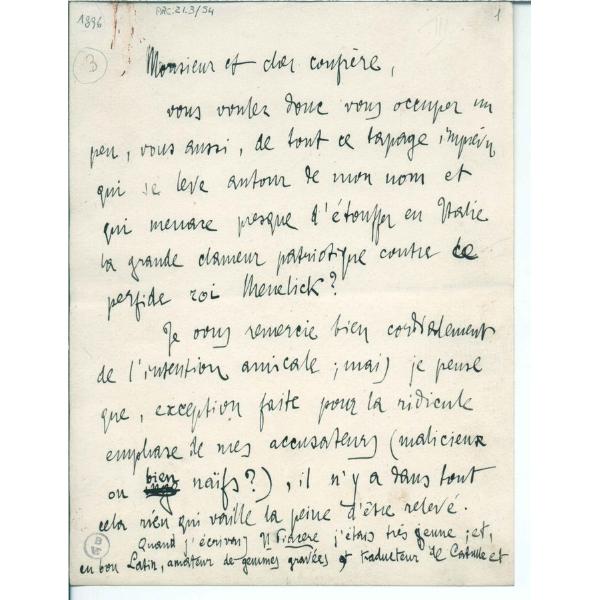 1896
PRC.21.3/54
1
3
Monsieur et cher confrère,
vous voulez donc vous occuper un
peu, vous aussi, de tout ce tapage imprévu
qui se lève autour de mon nom et
qui menace presque d'étouffer en Italie
la grande clameur patriotique contre ce
perfide roi Menelick?
Je vous remercie bien cordialement
de l'intention amicale; mais je pense
que, exception faite pour la ridicule
emphase de mes accusateurs (malicieux
ou bien naïfs?), il n'y a dans tout
cela rien qui vaille la peine d'être relevé.
Quand j'écrivais Il Piacere j'étais très jeune; et,
en bon Latin, amateur de gemmes gravées et traducteur de Catulle et